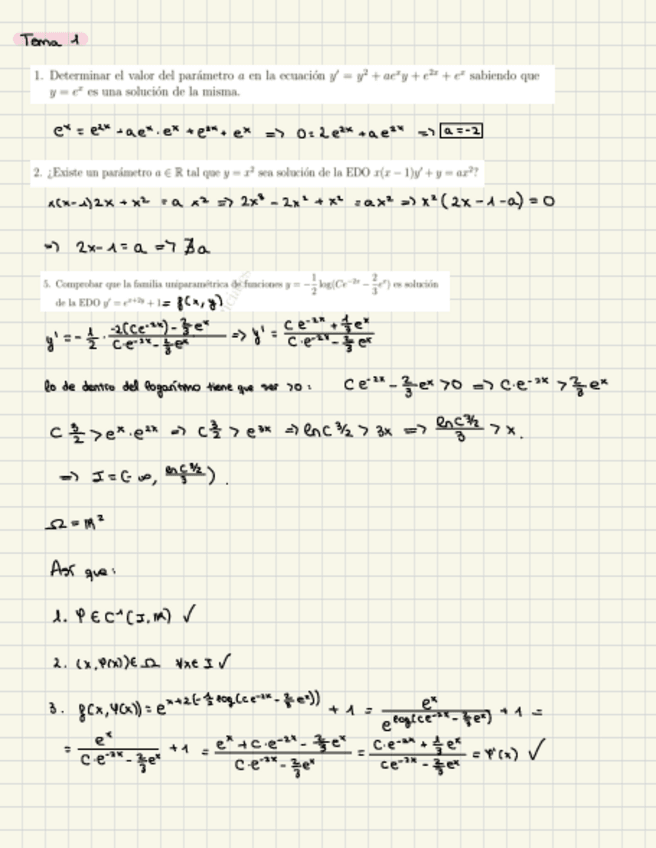 Tema 1
1. Determinar el valor del parámetro a en la ecuación y' = y² + aeˣy + e²ˣ + eˣ sabiendo que
y = eˣ es una solución de la misma.
eˣ = e²ˣ + aeˣ·eˣ + e²ˣ + eˣ => 0 = 2e²ˣ + ae²ˣ => a = -2
2. ¿Existe un parámetro a ∈ ℝ tal que y = x² sea solución de la EDO x(x − 1)y' + y = ax²?
x(x-1)2x + x² = a x² => 2x³ - 2x² + x² = ax² => x²(2x - 1 - a) = 0
=> 2x-1 = a => ∄a
5. Comprobar que la familia uniparamétrica de funciones y = -1/2 log(Ce⁻²ˣ - 2/3 eˣ) es solución
de la EDO y' = eˣ⁺²ʸ + 1 = f(x, y)
y' = -1/2 · (-2(Ce⁻²ˣ) - 2/3 eˣ)/(C·e⁻²ˣ - 2/3 eˣ) => y' = (Ce⁻²ˣ + 1/3 eˣ)/(C·e⁻²ˣ - 2/3 eˣ)
lo de dentro del logaritmo tiene que ser >0: Ce⁻²ˣ - 2/3 eˣ > 0 => C·e⁻²ˣ > 2/3 eˣ
C 3/2 > eˣ·e²ˣ => C 3/2 > e³ˣ => ln C 3/2 > 3x => (ln C 3/2)/3 > x.
=> I = (-∞, (ln C 3/2)/3).
Ω = ℝ²
Así que:
1. φ ∈ C¹(I, ℝ) ✓
2. (x, φ(x)) ∈ Ω ∀x ∈ I ✓
3. f(x, φ(x)) = e^(x+2(-1/2 log(Ce⁻²ˣ - 2/3 eˣ))) + 1 = eˣ/e^(log(Ce⁻²ˣ - 2/3 eˣ)) + 1 =
= eˣ/(C·e⁻²ˣ - 2/3 eˣ) + 1 = (eˣ + C·e⁻²ˣ - 2/3 eˣ)/(C·e⁻²ˣ - 2/3 eˣ) = (C·e⁻²ˣ + 1/3 eˣ)/(Ce⁻²ˣ - 2/3 eˣ) = φ'(x) ✓